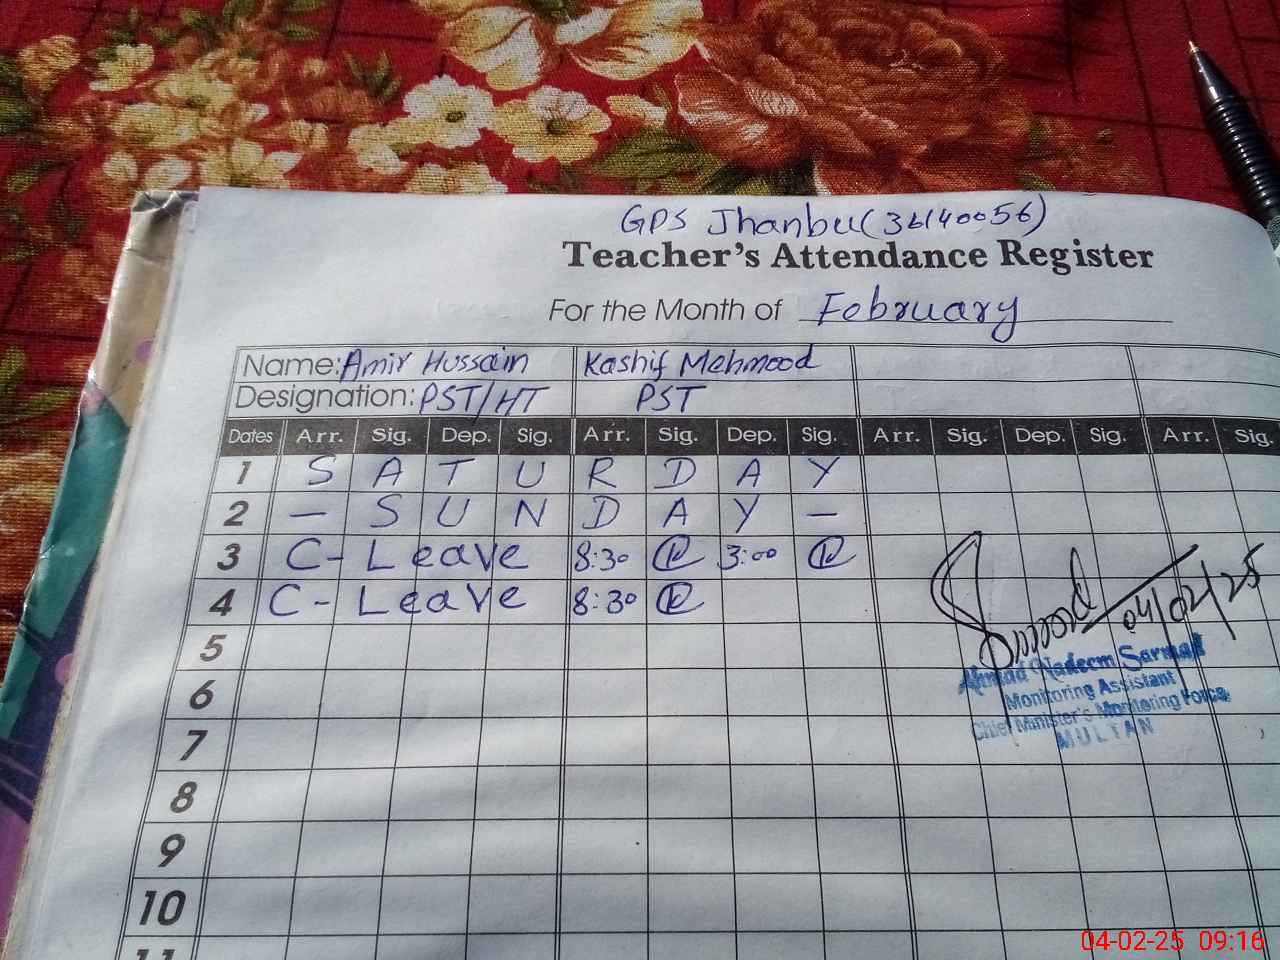 GPS Jhanbu(36140056)
Teacher's Attendance Register
For the Month of February
Name: Amir Hussain Kashif Mehmood
Designation: PST/HT PST
Dates Arr. Sig. Dep. Sig. Arr. Sig. Dep. Sig. Arr. Sig. Dep. Sig. Arr. Sig.
1 S A T U R D A Y
2 – S U N D A Y –
3 C- Leave 8:30 3:00
4 C- Leave 8:30
04/02/25
5
Ahmad Nadeem Sarmad
6
Monitoring Assistant
Chief Minister's Monitoring Force
7
MULTAN
8
9
10
11
04-02-25 09:16